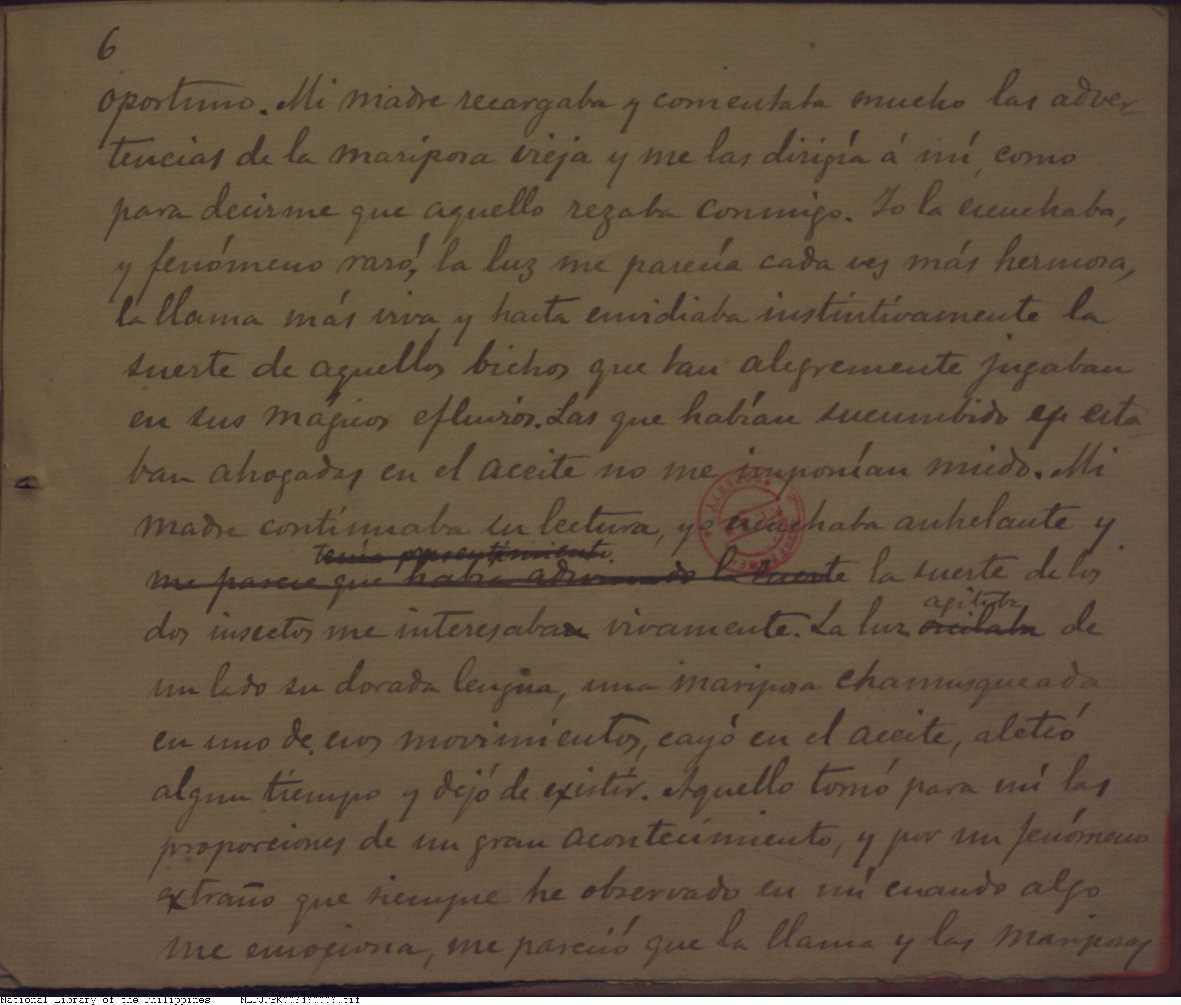 6
oportuno. Mi madre recargaba y comentaba mucho las adver-
tencias de la mariposa vieja y me las dirigía á mí, como
para decirme que aquello rezaba conmigo. Yo la escuchaba,
y fenómeno raro, la luz me parecía cada ves más hermosa,
la llama más viva, y hasta envidiaba instintivamente la
suerte de aquellos bichos que tan alegremente jugaban
en sus mágicos efluvios. Las que habían sucumbido y esta
ban ahogadas en el aceite no me imponían miedo. Mi
madre continuaba su lectura, yo escuchaba anhelante y
tenía presentimiento
me parece que había adivinado la suerte la suerte de los
agitaba
dos insectos me interesaba vivamente. La luz oscilaba de
un lado su dorada lengua, una mariposa chamusqueada
en uno de esos movimientos, cayó en el aceite, aleteó
algun tiempo y dejó de existir. Aquello tomó para mí las
proporciones de un gran acontecimiento, y por un fenómeno
extraño que siempre he observado en mí cuando algo
me emociona, me pareció que la llama y las mariposas
National Library of the Philippines